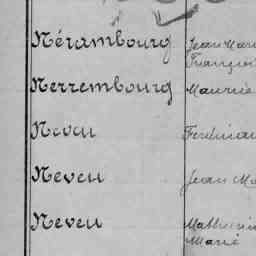 Nérambourg Jean Mar
François
Nerrembourg Maurice
Neveu Ferdinan
Neveu Jean Ma
Neveu Mathurin
Marie